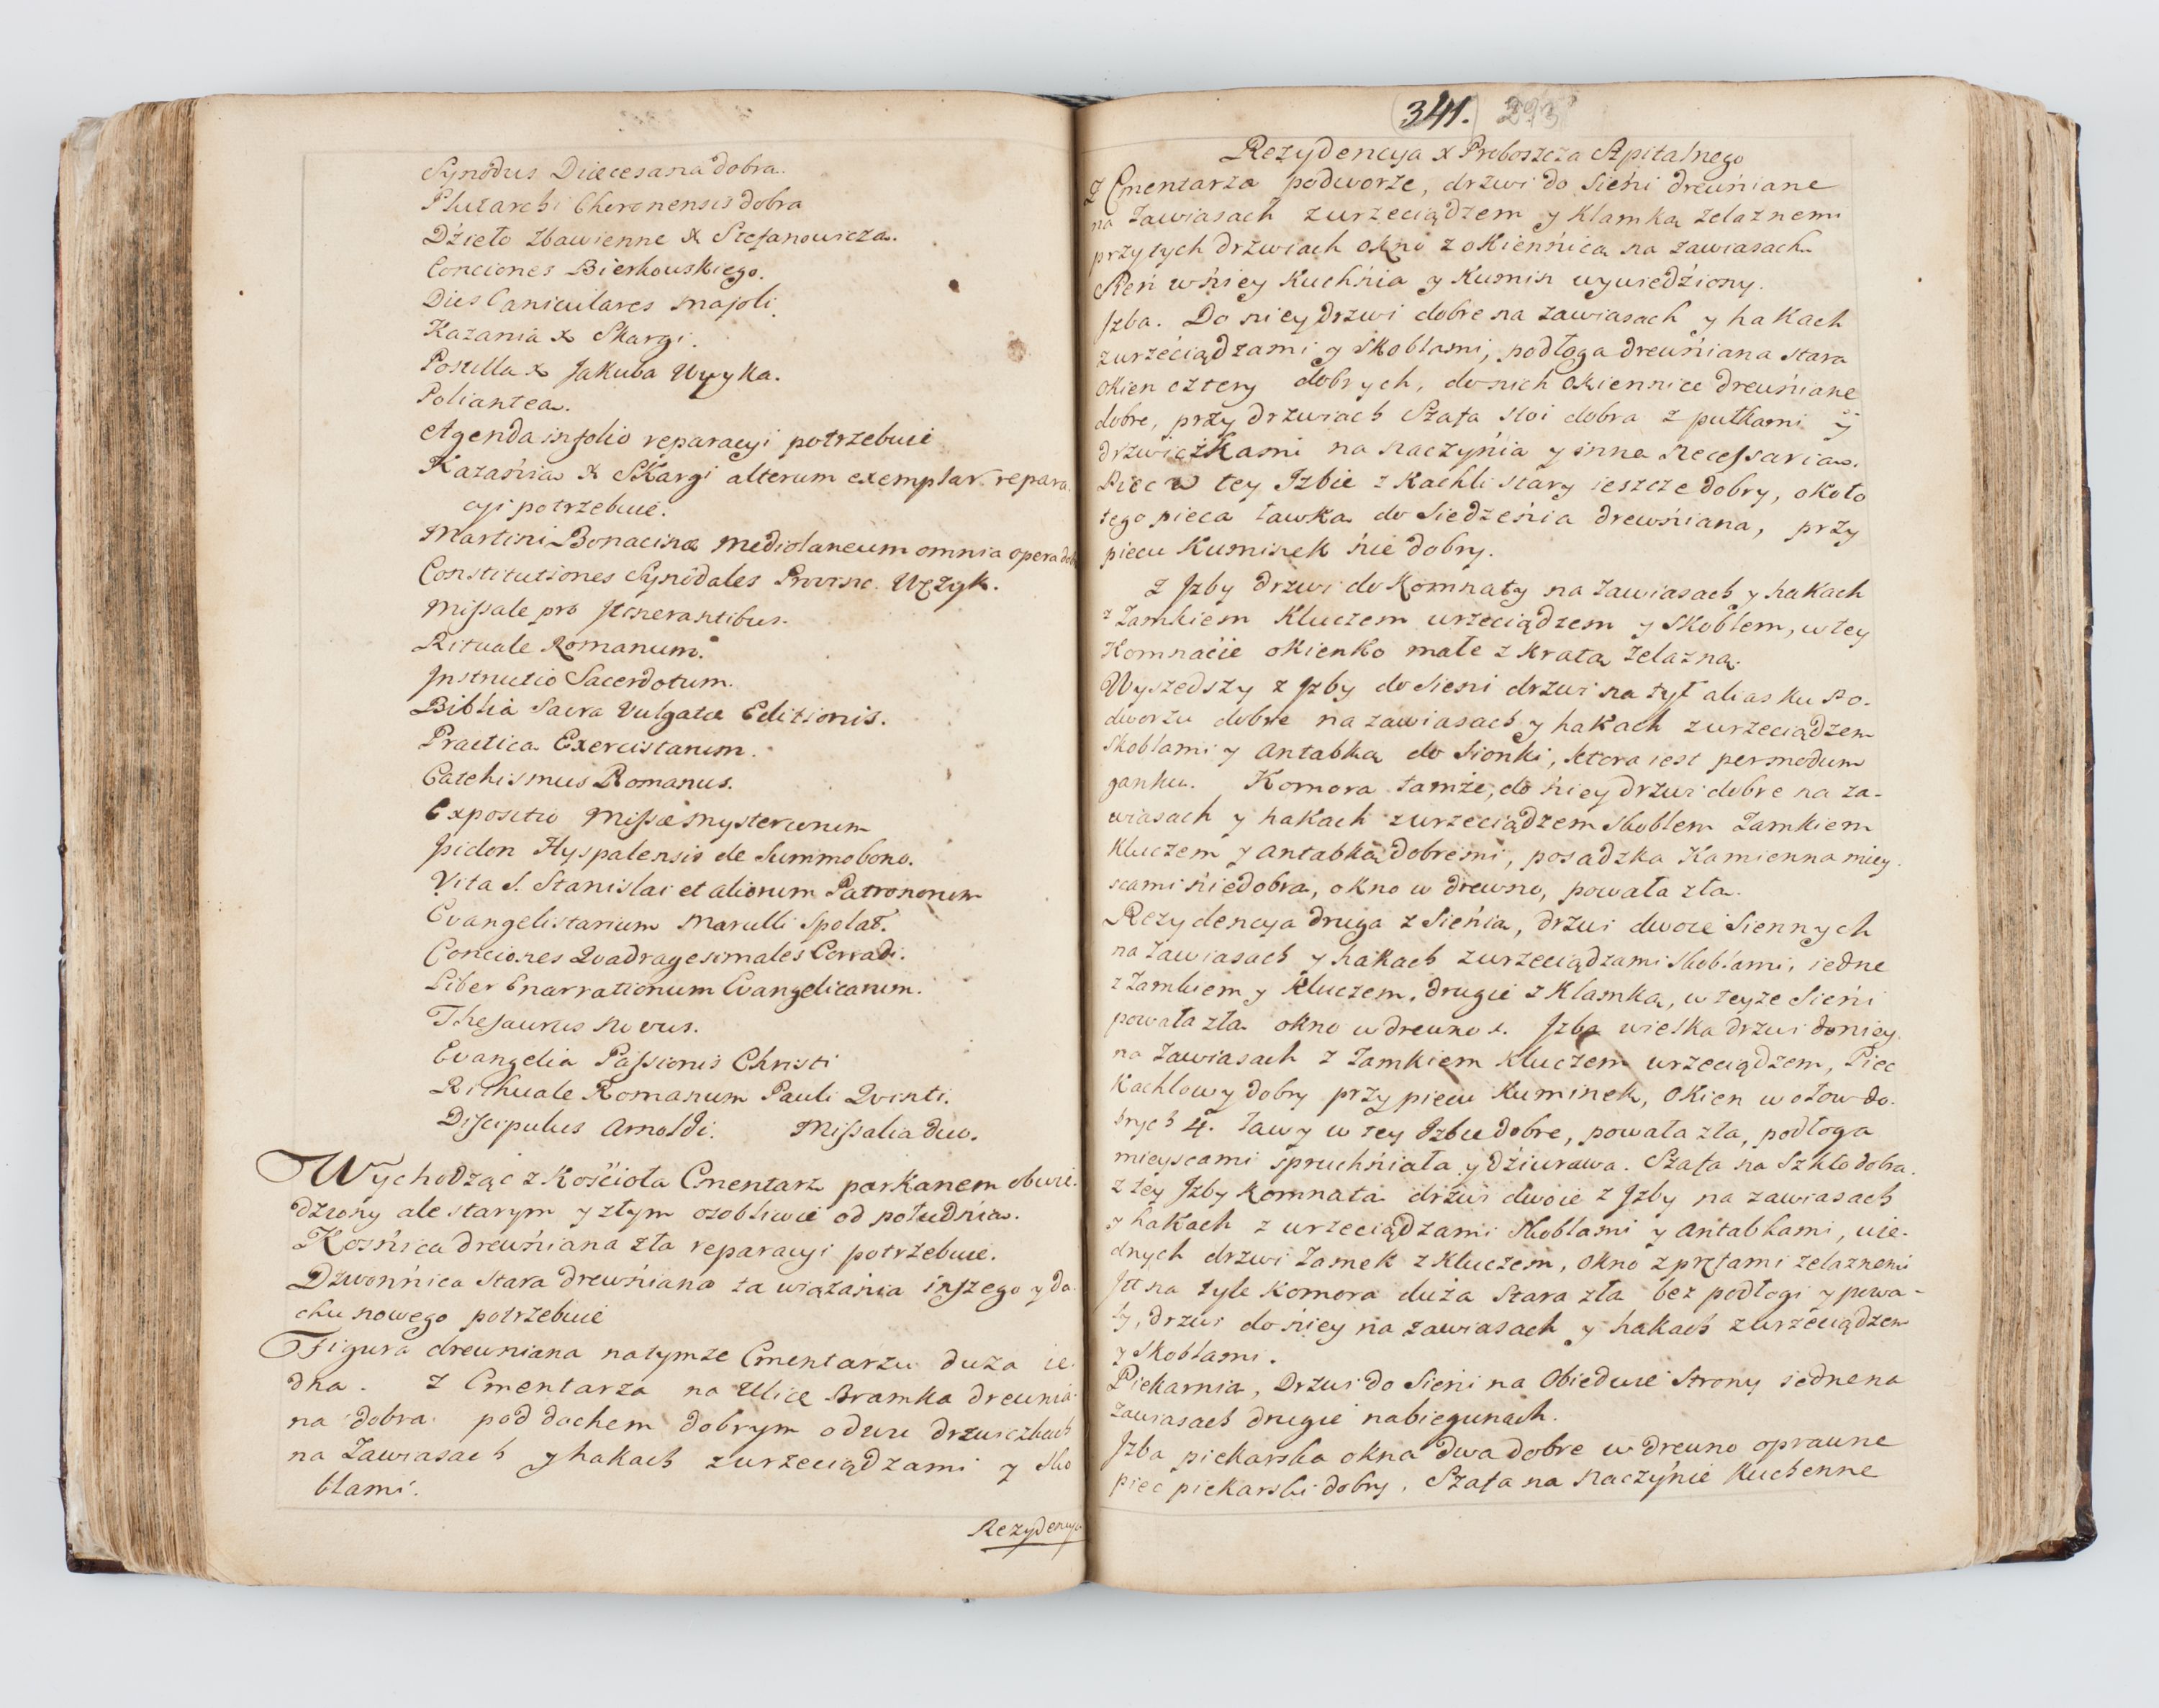 Synodus Diœcesana dobra.
Plutarchi Cheronensis dobra
Dźieło zbawienne X Stefanowicza.
Conciones Bierkowskiego.
Dies Caniculares Majoli.
Kazania X Skargi.
Postilla X Jakuba Wuyka.
Poliantea.
Agenda in folio reparacyi potrzebuie
Kazańia X Skargi alterum exemplar repara
cyi potrzebuie.
Martini Bonacinæ Mediolaneum omnia opera dob
Constitutiones Synodales Provinc. Wężyk.
Missale pro Itinerantibus.
Rituale Romanum.
Instructio Sacerdotum.
Biblia Sacra Vulgatæ Editionis.
Practica Exorcistarum.
Catehismus Romanus.
Expositio Missæ Mysteriorum
Isidori Hyspalensis de Summo bono.
Vita S. Stanislai et aliorum Patronorum
Evangelistarium Marulli Spolat.
Conciones Quadragesimales Corradi.
Liber Enarrationum Evangelicarum.
Thesaurus Novus.
Evangelia Passionis Christi
Rithuale Romanum Pauli Quinti.
Discipulus Arnoldi. Missalia duo.
Wychodząc z Kościoła Cmentarz parkanem obwie
dziony ale starym y złym osobliwie od południa.
Kośńica drewńiana zła reparacyi potrzebuie.
Dzwonńica stara drewńiana ta wiązańia inszego y da
chu nowego potrzebuie
Figura drewniana na tymze Cmentarzu duza ie
dna. Z Cmentarza na Ulice Bramka drewnia
na dobra pod dachem dobrym o dwu drzwiczkach
na Zawiasach y hakach z wrzeciądzami y sko
blami.
Rezydencya
341. 293
Rezydencya X Proboszcza Szpitalnego
Z Cmentarza podworze, drzwi do Sieńi drewńiane
na Zawiasach z wrzeciądzem y Klamką zelaznemi
przy tych drzwiach okno z okiennicą na zawiasach.
Sień w ńiey Kuchńia y Kumin wywiedźiony.
Izba. Do niey drzwi dobre na zawiasach y hakach
z wrzeciądzami y skoblami, podłoga drewńiana stara
okien cztery dobrych, do nich okiennice drewńiane
dobre, przy drzwiach Szafa stoi dobra z pułkami y
drzwiczkami na naczyńia y inna necessaria.
Piec w tey Izbie z Kachli stary ieszcze dobry, około
tego pieca ławka do siedzeńia drewńiana, przy
piecu Kuminek ńie dobry.
Z Izby drzwi do Komnaty na Zawiasach y hakach
z Zamkiem Kluczem wrzeciądzem y Skoblem, w tey
Komnaćie okienko małe z kratą Zelazną.
Wyszedszy z Izby do Sieni drzwi na tył alias ku Po-
dworzu dobre na zawiasach y hakach z wrzeciądzem
skoblami y antabką do Sionki, ktora iest per modum
ganku. Komora tamże, do ńiey drzwi dobre na za-
wiasach y hakach z wrzeciądzem skoblem Zamkiem
Kluczem y antabką dobremi, posadzka Kamienna miey
scami ńiedobra, okno w drewno, powała zła.
Rezydencya druga z Sieńią, drzwi dwoie Siennych
na Zawiasach y hakach z wrzeciądzami skoblami, iedne
z Zamkiem y Kluczem, drugie z Klamką, w teyze Sieńi
powała zła okno w drewno Izba wielka drzwi do niey
na Zawiasach z Zamkiem Kluczem wrzeciądzem, Piec
Kachlowy dobry przy piecu Kuminek, Okien w ołow do-
brych 4. ławy w tey Izbie dobre, powała zła, podłoga
mieyscami spruchńiała y dźiurawa. Szafa na Szkło dobra.
z tey Izby Komnata drzwi dwoie z Izby na zawiasach
y hakach z wrzeciądzami skoblami y antabkami, u ie-
dnych drzwi Zamek z Kluczem, Okno z prętami zelaznemi
Jtt na tyle Komora duża stara zła bez podłogi y powa-
ły, drzwi do ńiey na zawiasach y hakach z wrzeciądzem
y skoblami.
Piekarnia, Drzwi do Sieni na Obiedwie Strony iedne na
Zawiasach drugie na biegunach.
Izba piekarska okna dwa dobre w drewno oprawne
piec piekarski dobry, Szafa na naczynie kuchenne